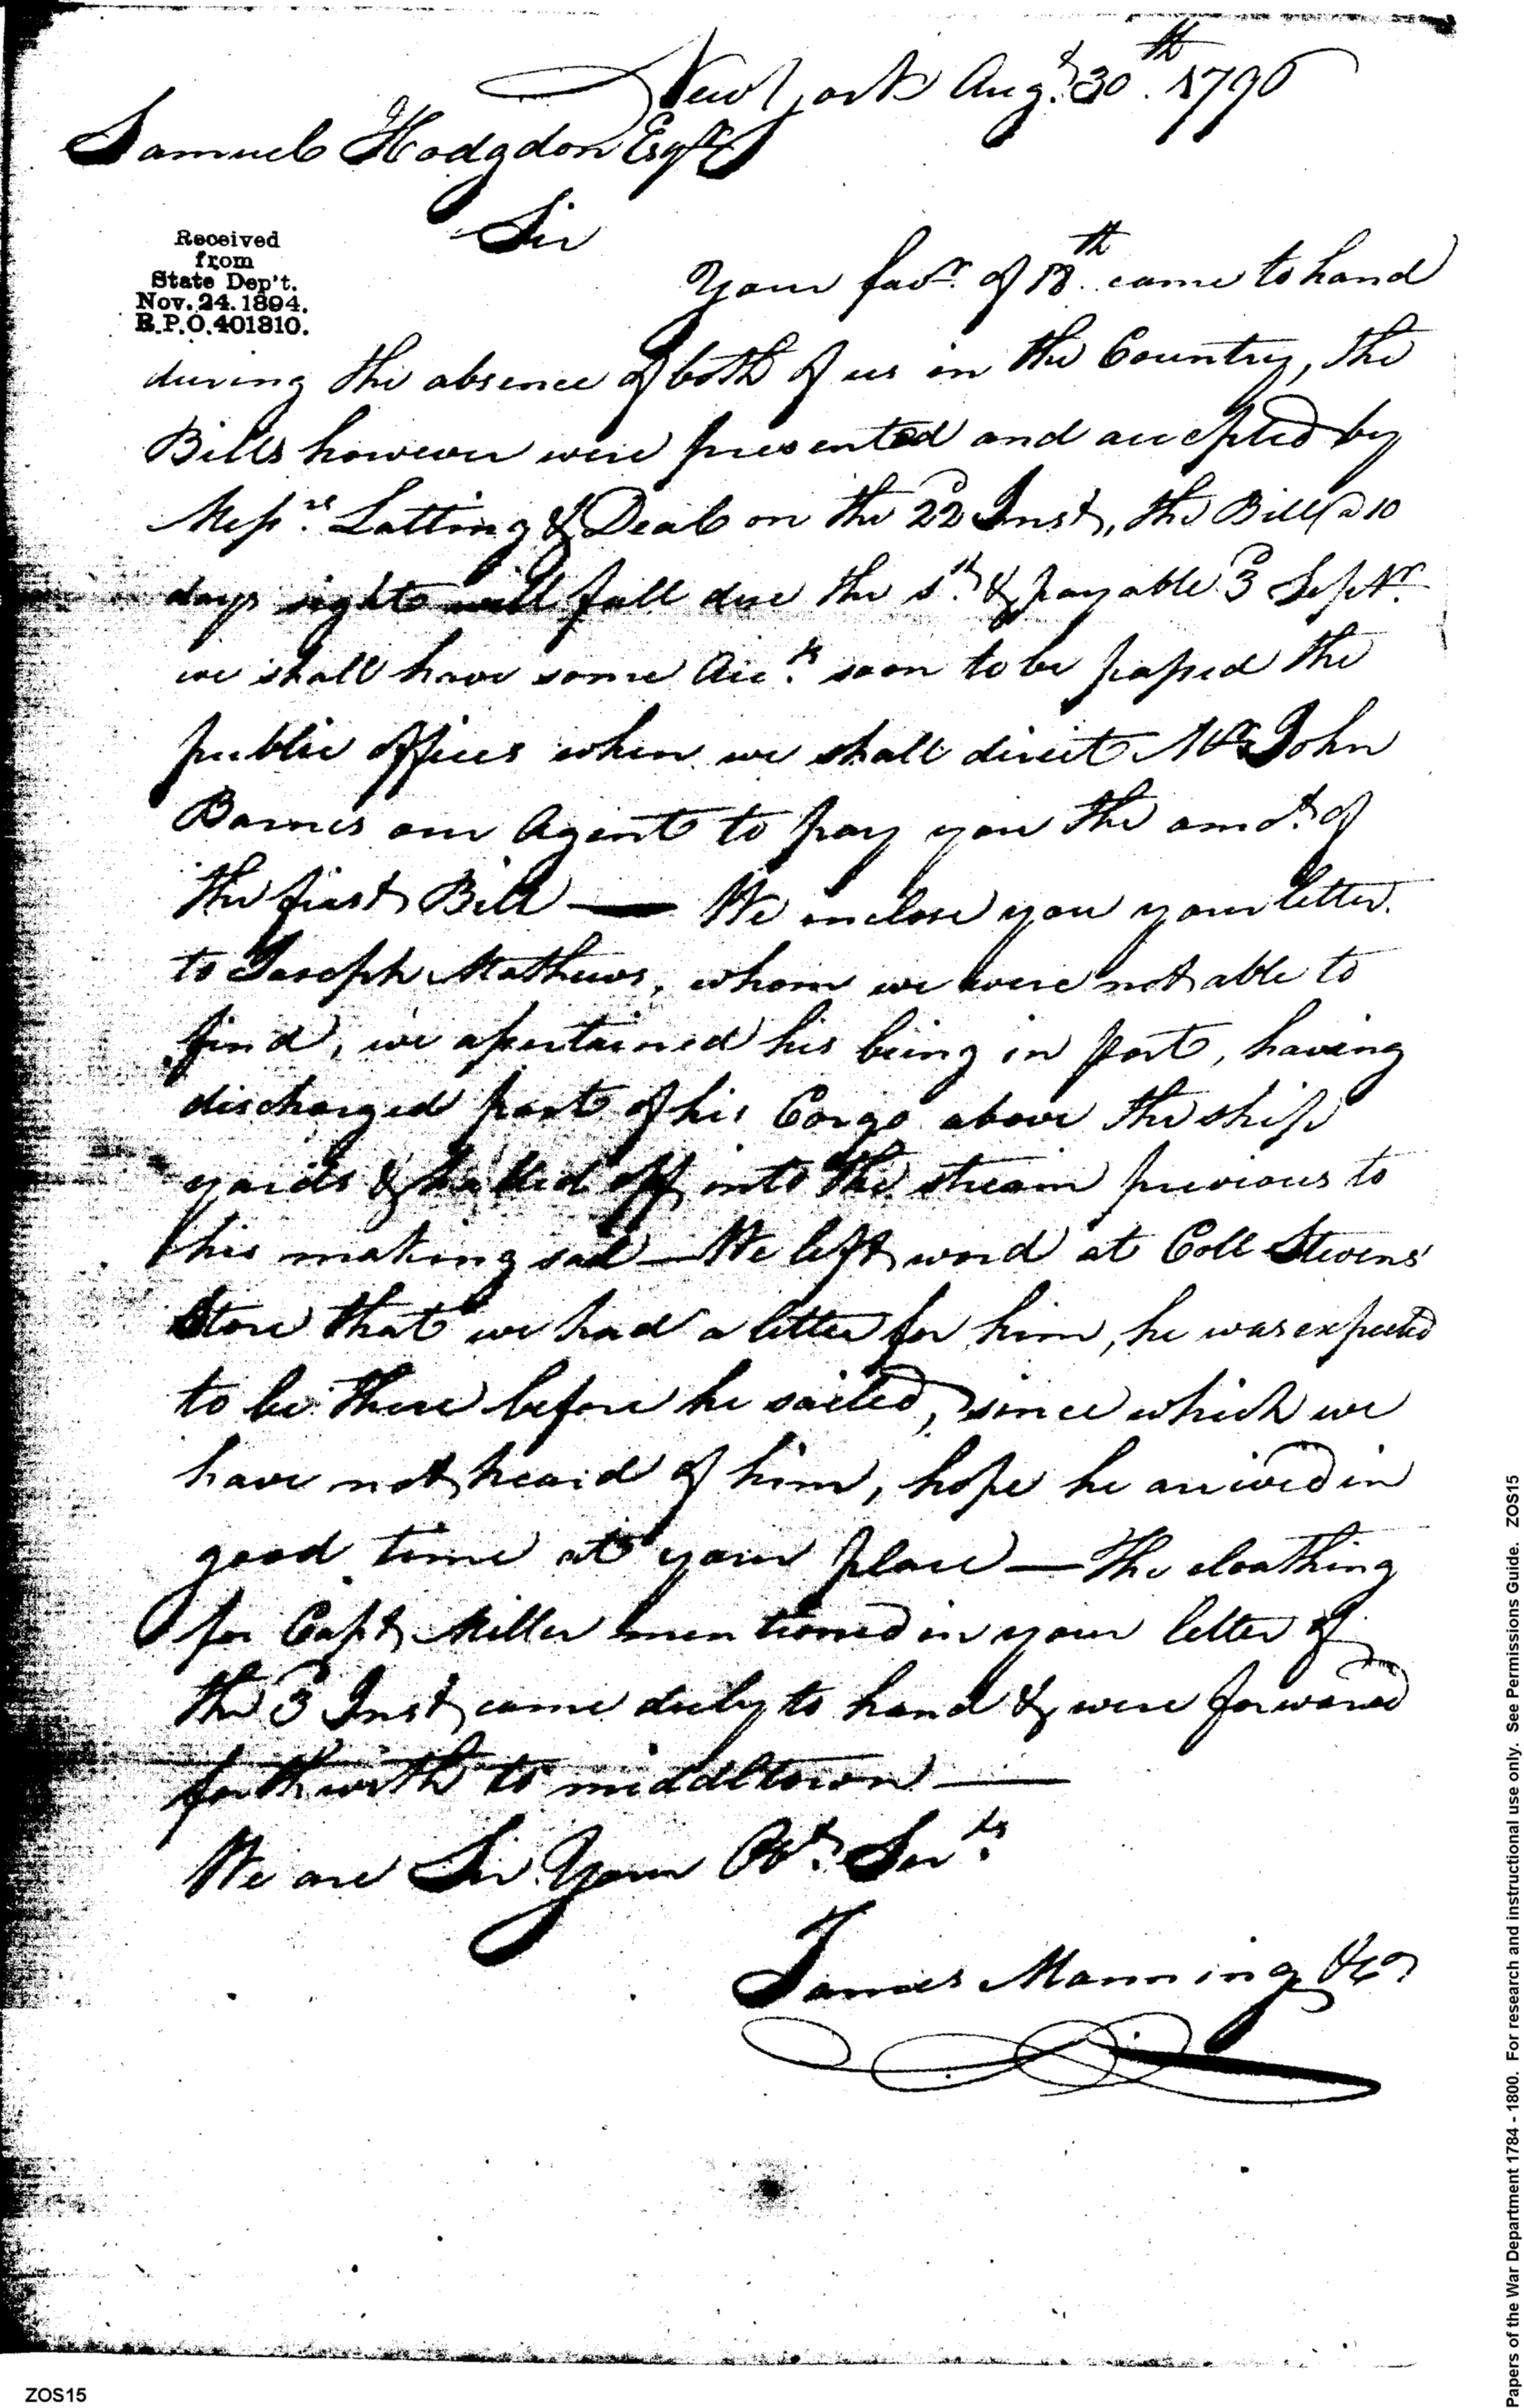 New York Augt. 30th. 1796
Samuel Hodgdon Esqr
Sir
Received
from
State Dep't.
Nov. 24. 1894.
R.P.O. 401310.
Your favr. of 18th. came to hand
during the absence of both of us in the Country, the
Bills however were presented and accepted by
Messrs. Latting & Deal on the 22d Inst, the Bill @ 10
days sight will fall due the 1st. & payable 3d Septr.
we shall have some Accts. soon to be passed the
public offices when we shall direct Mr John
Barnes our Agent to pay you the amot. of
the first Bill — We enclose you your letter
to Joseph Mathews, whom we were not able to
find, we assertained his being in port, having
discharged part of his Cargo above the ship
yards & halled off into the stream previous to
his making sail — We left word at Coll Stevens'
Store that we had a letter for him, he was expected
to be there before he sailed, since which we
have not heard of him, hope he arrived in
good time at your place — The cloathing
for Capt Miller mentioned in your letter of
the 3d Inst came duely to hand & were forwared
forthwith to middletown —
We are Sir Your Obt. Servts.
James Manning & Co
ZOS15
Papers of the War Department 1784 - 1800. For research and instructional use only. See Permissions Guide. ZOS15